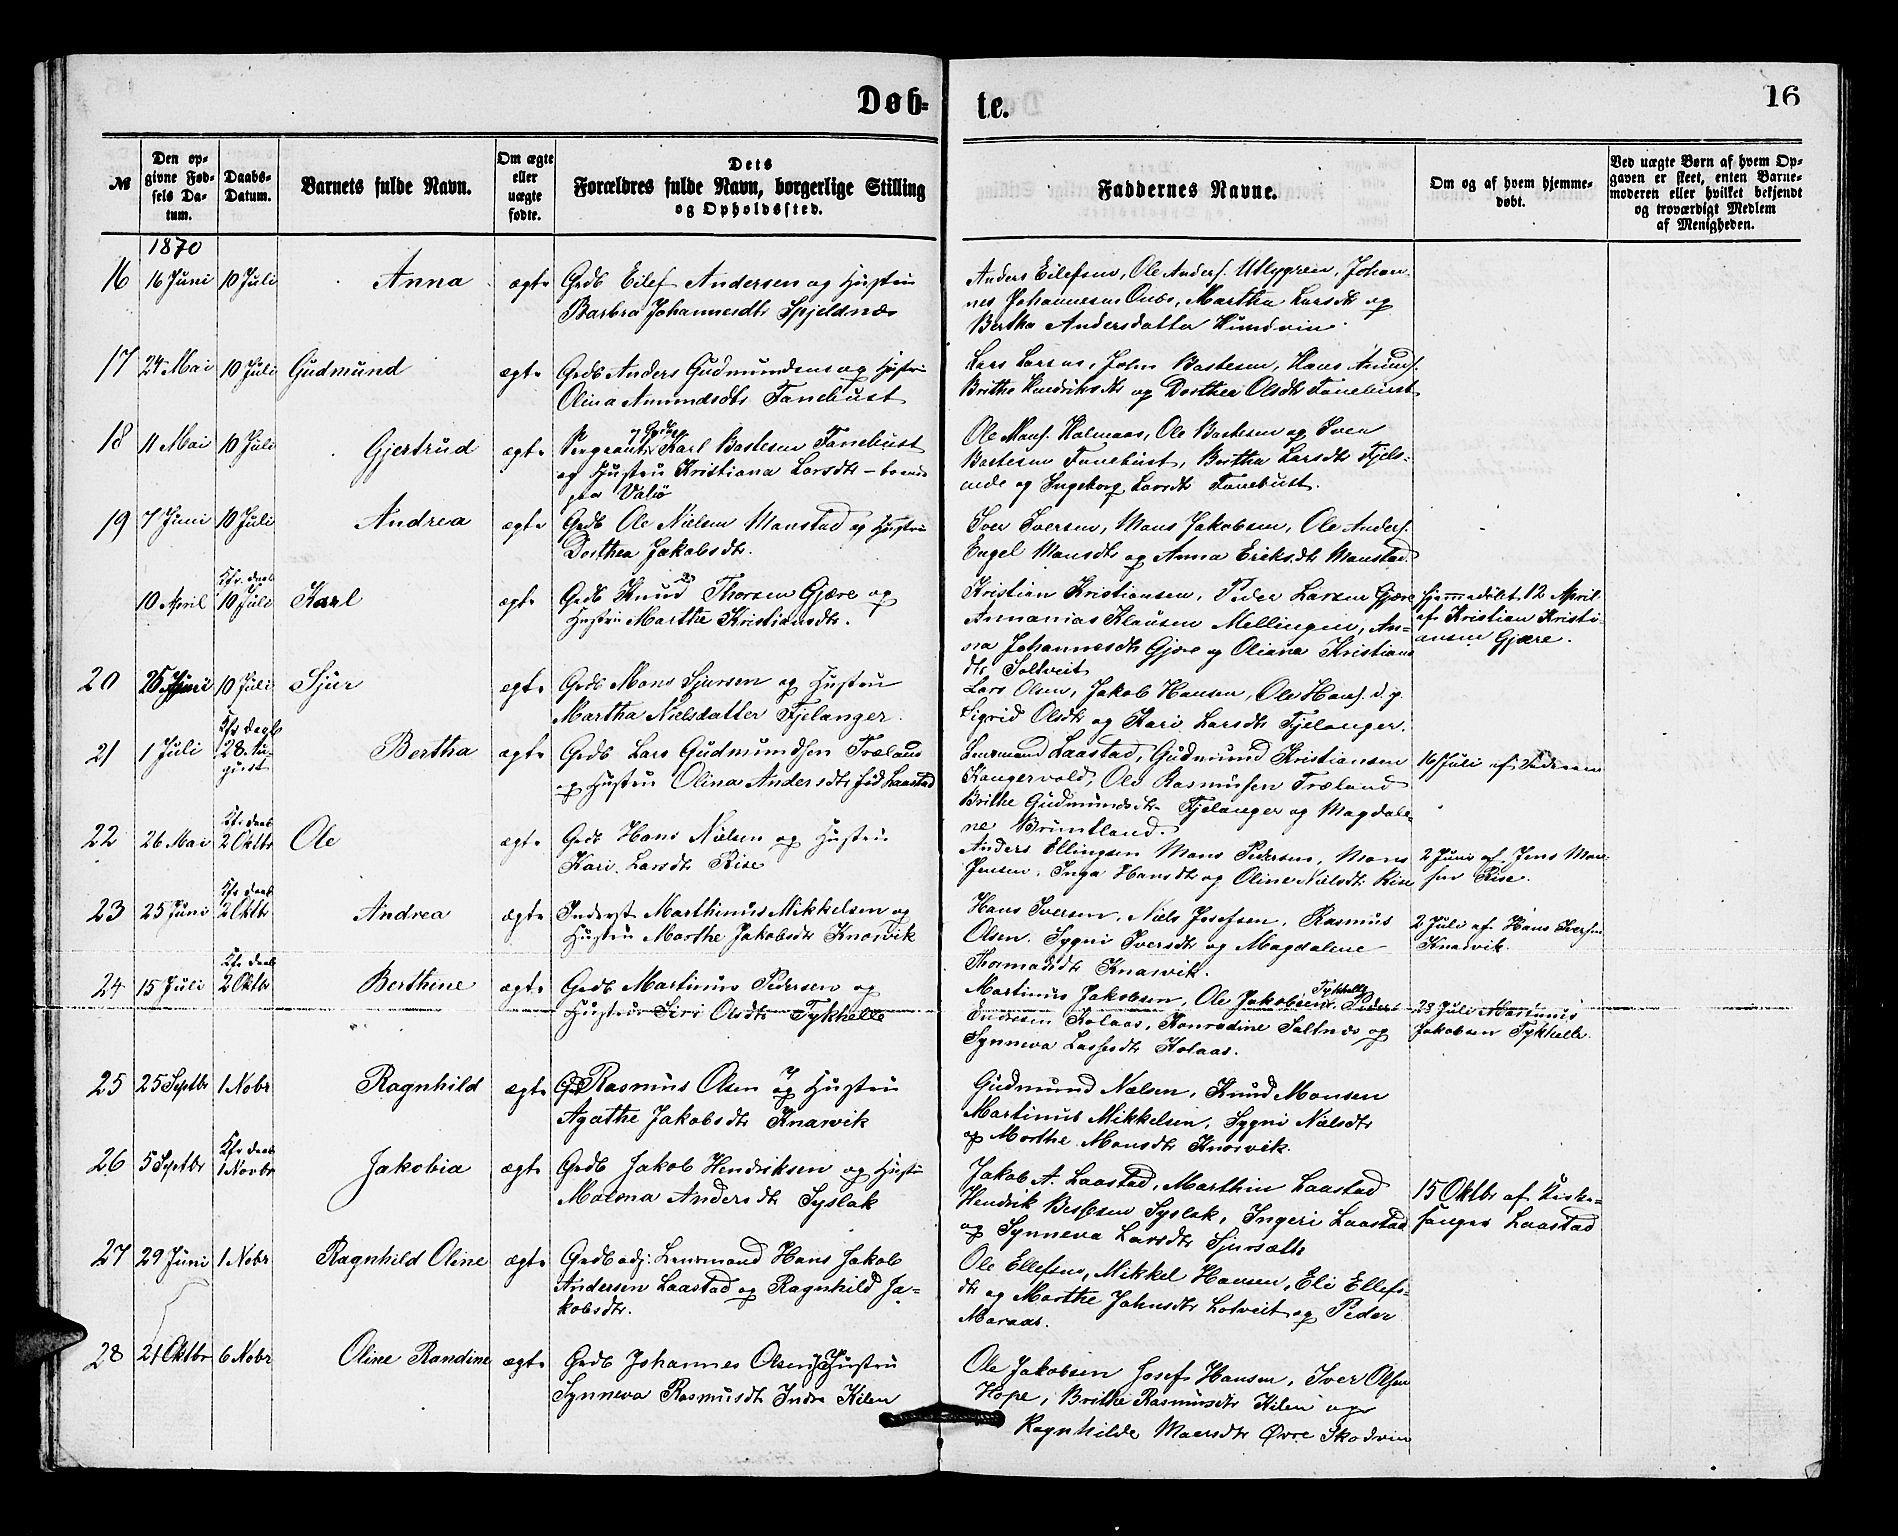 Døb-
te.
16
№
Den op-
givne Fød-
sels Da-
tum.
Daabs-
Datum.
Barnets fulde Navn.
Om ægte
eller
uægte
fødte.
Dets
Forældres fulde Navn, borgerlige Stilling
og Opholdssted.
Faddernes Navne.
Om og af hvem hjemme-
døbt.
Ved uægte Børn af hvem Op-
gaven er skeet, enten Barne-
moderen eller hvilket bekjendt
og troværdigt Medlem
af Menigheden.
1870
16 16 Juni 10 Juli Anna ægte Grdb Eilef Andersen og Hustru
Barbra Johannesdtr Spjeldnæs
Anders Eilefsen, Ole Anders. Utlygren, Johan-
nes Johannesen Ones, Martha Larsdtr og
Bertha Andersdatter Hundvin.
17 24 Mai 10 Juli Gudmund ægte Grdb Anders Gudmundsen og Hustru
Olina Amundsdtr Tanebust
Lars Larsen, John Bastesen, Hans Amunds.
Brithe Hendriksdtr og Dorthea Olsdtr Tanebust
18 11 Mai 10 Juli Gjertrud ægte Sergeant Karl Bastesen Tanebust
og Hustru Kristiana Larsdtr - boende
paa Valø
Ole Mons. Halmaas, Ole Bastesen og Sven
Bastesen Tanebust, Bertha Larsdtr Fjels-
ende og Ingeborg Larsdtr Tanebust.
19 7 Juni 10 Juli Andrea ægte Grdb Ole Nielsen Manstad og Hustru
Dorthea Jakobsdtr.
Iver Iversen, Mons Jakobsen, Ole Anders.
Engel Monsdtr og Anna Eriksdtr Manstad.
Kfr. daab
10 April 10 Juli Karl ægte Grdb Knud Thorsen Gjære og
Hustru Marthe Kristiansdtr.
Kristian Kristiansen, Peder Larsen Gjære
Annanias Klausen Mellingen, An-
na Johannesdtr Gjære og Oliana Kristians
dtr Soltveit
Hjemmedøbt 12 April
af Kristian Kristi-
ansen Gjære.
20 25 10 Juli Sjur ægte Grdb Mons Sjursen og Hustru
Martha Nielsdatter Fjelanger.
Lars Olsen, Jakob Hansen, Ole Hans. d.y.
Sigrid Olsdtr og Kari Larsdtr Fjelanger.
Kfr daab
21 1 Juli 28 Au-
gust
Bertha ægte Grdb Lars Gudmundsen Træland
og Hustru Olina Andersdtr fød Laastad
Lensmand Laastad, Gudmund Kristiansen
Kongervold, Ole Rasmusen Træland
Brithe Gudmundsdtr Fjelanger og Magdale-
ne Bruntland.
16 Juli af Faderen
Kfr daab
22 26 Mai 2 Oktbr Ole ægte Grdb Hans Nielsen og Hustru
Kari Larsdtr Rise
Anders Ellingsen Mons Pedersen, Mons
Jensen, Inga Hansdtr og Oline Nielsdtr Rise
2 Juni af Jens Mon-
sen Rise.
Kfr daab
23 25 Juni 2 Oktbr Andrea ægte Inderst Marthinus Mikkelsen og
Hustru Marthe Jakobsdtr Knarvik
Hans Iversen, Niels Josefsen, Rasmus
Olsen, Sygni Iversdtr og Magdalene
Thormodsdtr Knarvik.
2 Juli af Hans Iversen
Knarvik
Kfr daab
24 15 Juli 2 Oktbr Berthine ægte Grdb Martinus Pedersen og
Hustru Siri Olsdtr Tykhelle
Martinus Jakobsen, Ole Jakobsen Tykhelle, Peder
Endresen Kolaas, Konradine Saltnes og
Synneva Lassesdtr Kolaas.
23 Juli Martinus
Jakobsen Tykhelle.
25 25 Septbr 1 Nobr Ragnhild ægte Grdb Rasmus Olsen og Hustru
Agathe Jakobsdtr Knarvik
Gudmund Nielsen, Knud Monsen
Martinus Mikkelsen, Sygni Nielsdtr
og Marthe Monsdtr Knarvik.
Kfr daab
26 5 Septbr 1 Novbr Jakobia ægte Grdb Jakob Hendriksen og Hustru
Malena Andersdtr Syslak
Jakob A. Laastad, Marthin Laastad
Hendrik Bessesen Syslak, Ingeri Laastad
og Synneva Larsdtr Sjursætte
15 Oktbr af Kirke-
sanger Laastad
27 29 Juni 1 Nobr Ragnhild Oline ægte Grdb adj. Lensmand Hans Jakob
Andersen Laastad og Ragnhild Ja-
kobsdtr.
Ole Ellefsen, Mikkel Hansen, Eli Ellefs-
dtr og Marthe Johnsdtr Lotveit og Peder
Maraas.
28 21 Oktbr 6 Nobr Oline Randine ægte Grdb Johannes Olsen og Hustru
Synneva Rasmusdtr Indre Kilen
Ole Jakobsen Josef Hansen, Iver Olsen
Hope, Brithe Rasmusdtr Kilen og
Ragnhilde Maersdtr Øvre Skodvin